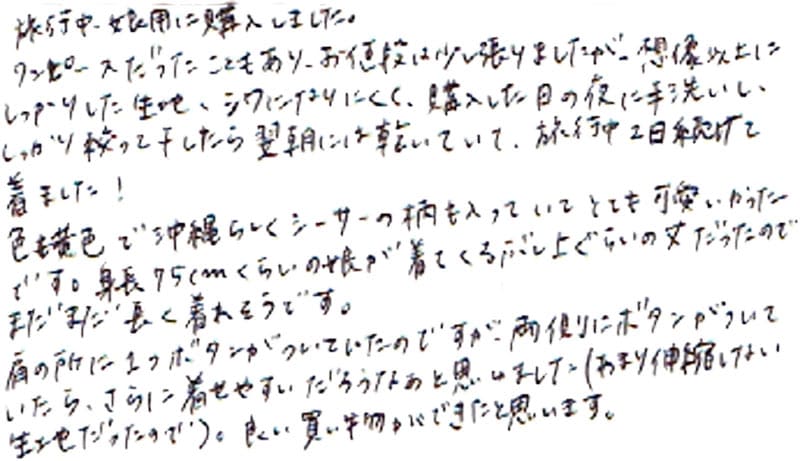 旅行中、娘用に購入しました。
ワンピースだったこともあり、お値段は少し張りましたが、想像以上に
しっかりした生地、シワになりにくく、購入した日の夜に手洗いし、
しっかり絞って干したら翌朝には乾いていて、旅行中2日続けて
着ました！
色も黄色で沖縄らしくシーサーの柄も入っていてとても可愛いかった
です。身長75cmくらいの娘が着てくるぶし上ぐらいの丈だったので
まだまだ長く着れそうです。
肩の所に1つボタンがついていたのですが、両側りにボタンがついて
いたら、さらに着せやすいだろうなあと思いました（あまり伸縮しない
生地だったので）。良い買い物ができたと思います。